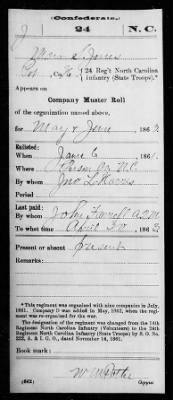 (Confederate.)
J 24 N.C.
Jones
Co. 24 Reg't North Carolina
Infantry (State Troops).*
Appears on
Company Muster Roll
of the organization named above,
for May & June 186
Enlisted:
When June 6 186
Where N.C.
By whom Jno
Period
Last paid:
By whom John
To what time April 30 186
Present or absent Present
Remarks:
*This regiment was organized with nine companies in July,
1861. Company D was added in May, 1862, when the regi-
ment was re-organized for the war.
The designation of the regiment was changed from the 14th
Regiment North Carolina Infantry (Volunteers) to the 24th
Regiment North Carolina Infantry (State Troops) by S. O. No.
222, A. & I. G. O., dated November 14, 1861.
Book mark:
(642)
Copyist.